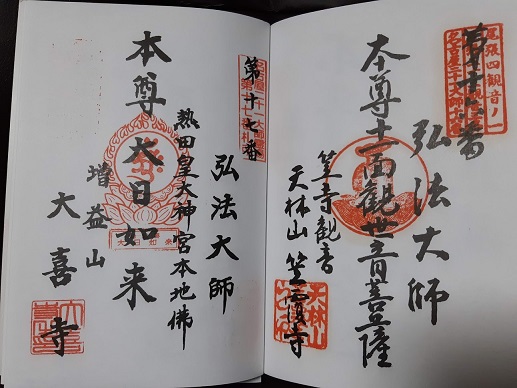 尾張四観音ノ一
第十六番
弘法大師
本尊十一面観世音菩薩
笠寺観音
天林山笠覆寺
天林山
第十七番
弘法大師
熱田皇大神宮本地佛
本尊大日如来
増益山
大喜寺